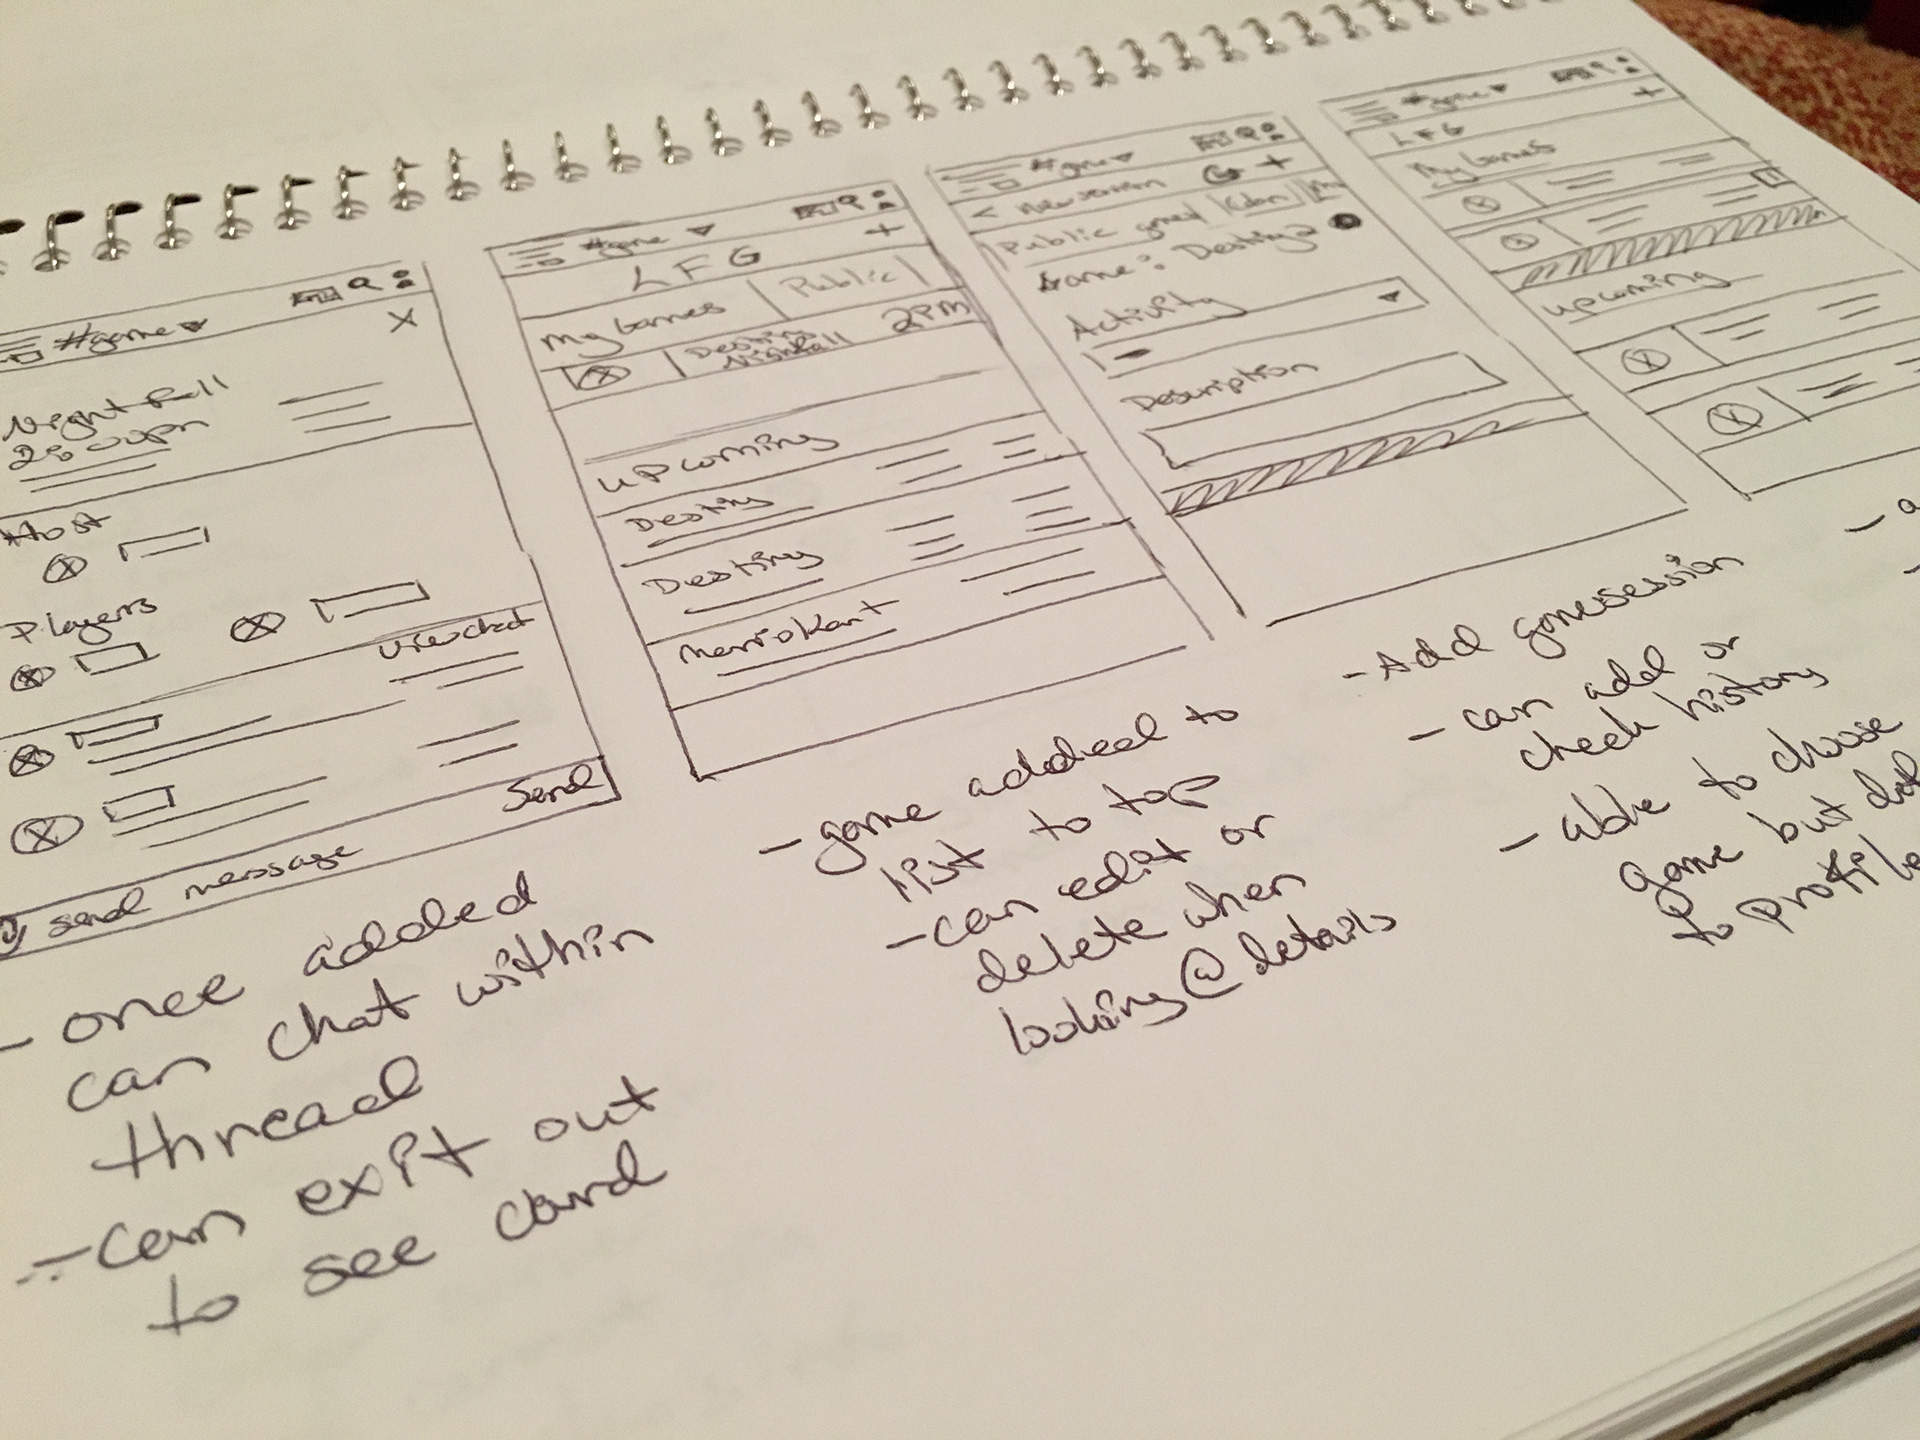 #game
X
Nightfall
2:00pm
Host
Players
view chat
Send
send message
- once added
can chat within
thread
- can exit out
to see card
#game
+
LFG
My Games | Public
Destiny 2PM
Nightfall
upcoming
Destiny
Destiny
MarioKart
- game added to
list to top
- can edit or
delete when
looking @ details
#game
< New session +
Public
Game: Destiny 2
Activity
Description
- Add gamesession
- can add or
check history
- able to choose
game but
to profile
#game
LFG +
My Games
upcoming